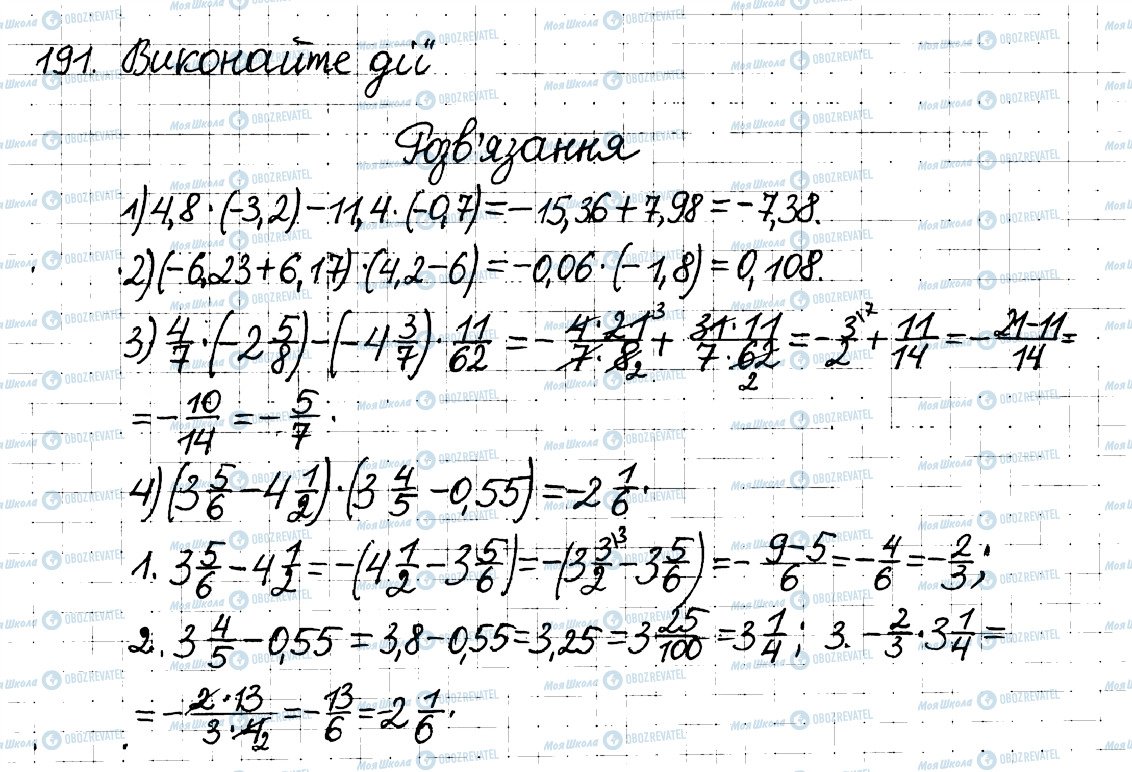 191. Виконайте дії
Розв'язання
1) 4,8 · (-3,2) - 11,4 · (-0,7) = -15,36 + 7,98 = -7,38.
2) (-6,23 + 6,17) · (4,2 - 6) = -0,06 · (-1,8) = 0,108.
3) 4/7 · (-2 5/8) - (-4 3/7) · 11/62 = - 4·21/7·8 + 31·11/7·62 = - 3/2 + 11/14 = - 21-11/14 =
= - 10/14 = - 5/7.
4) (3 5/6 - 4 1/2) · (3 4/5 - 0,55) = -2 1/6.
1. 3 5/6 - 4 1/2 = -(4 1/2 - 3 5/6) = -(3 3/2 - 3 5/6) = - 9-5/6 = - 4/6 = - 2/3;
2. 3 4/5 - 0,55 = 3,8 - 0,55 = 3,25 = 3 25/100 = 3 1/4; 3. - 2/3 · 3 1/4 =
= - 2·13/3·4 = - 13/6 = -2 1/6.